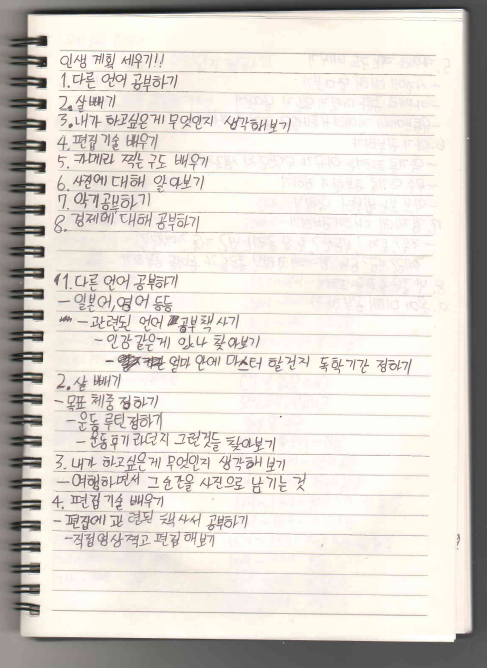 인생 계획 세우기!!
1. 다른 언어 공부하기
2. 살 빼기
3. 내가 하고싶은게 무엇인지 생각해보기
4. 편집 기술 배우기
5. 카메라 찍는 구도 배우기
6. 사진에 대해 알아보기
7. 악기공부하기
8. 경제에 대해 공부하기
1. 다른 언어 공부하기
- 일본어, 영어 등등
- 관련된 언어 공부책 사기
- 인강같은게 있나 찾아보기
- 얼마 안에 마스터 할건지 독학기간 정하기
2. 살 빼기
- 목표 체중 정하기
- 운동 루틴 정하기
- 운동후기라던지 그런것들 찾아보기
3. 내가 하고싶은게 무엇인지 생각해 보기
- 여행하면서 그 순간을 사진으로 남기는 것
4. 편집 기술 배우기
- 편집에 관련된 책 사서 공부하기
- 직접 영상 찍고 편집 해보기